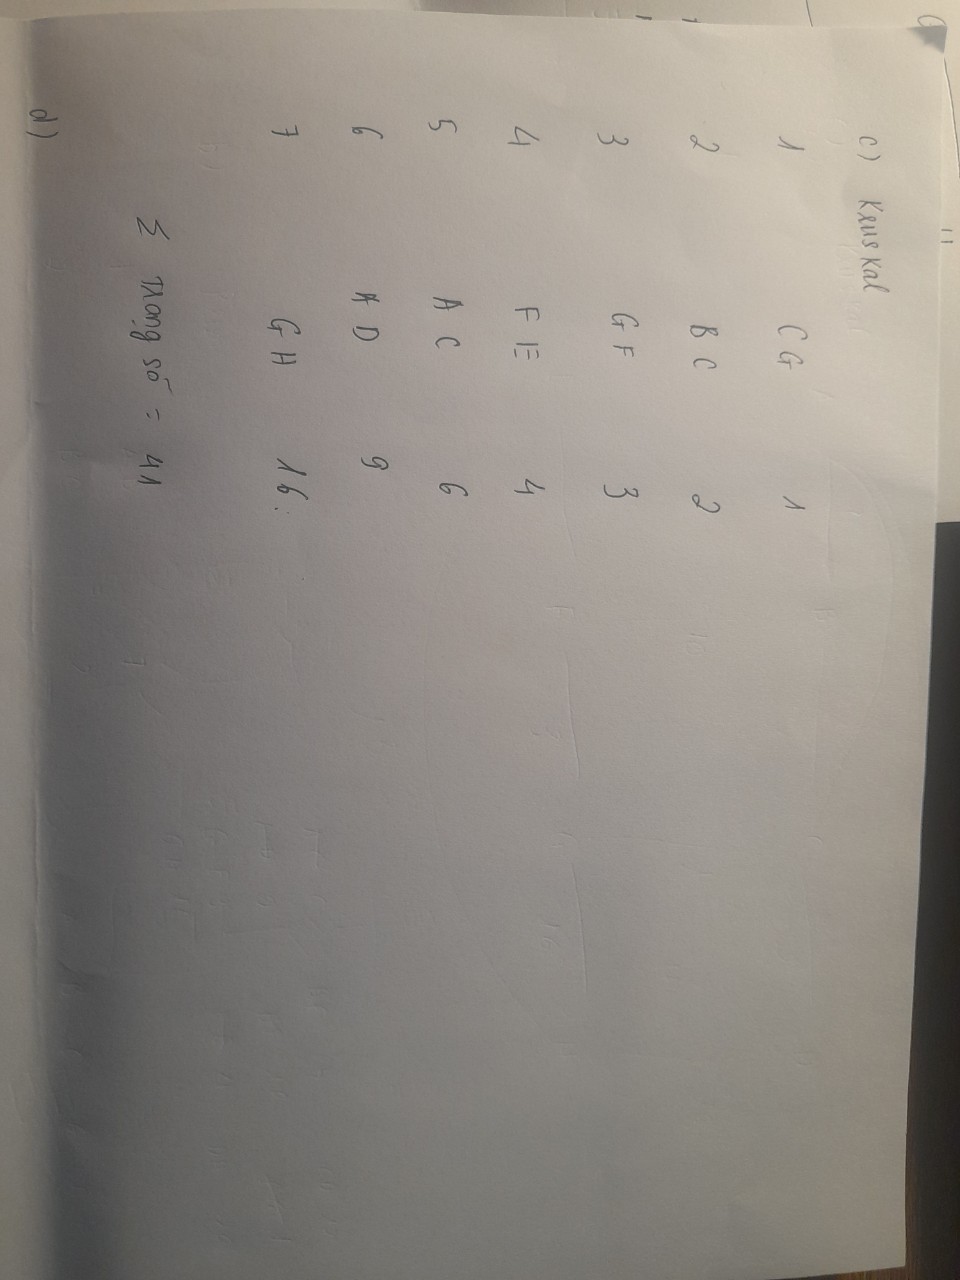 c) Kruskal
1 CG 1
2 BC 2
3 GF 3
4 FE 4
5 AC 6
6 AD 9
7 GH 16.
Σ trọng số = 41
d)